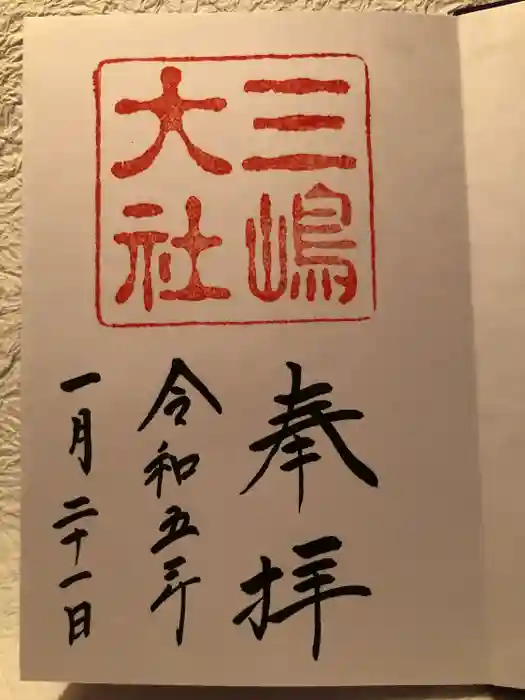 三嶋
大社
奉拝
令和五年
一月二十一日